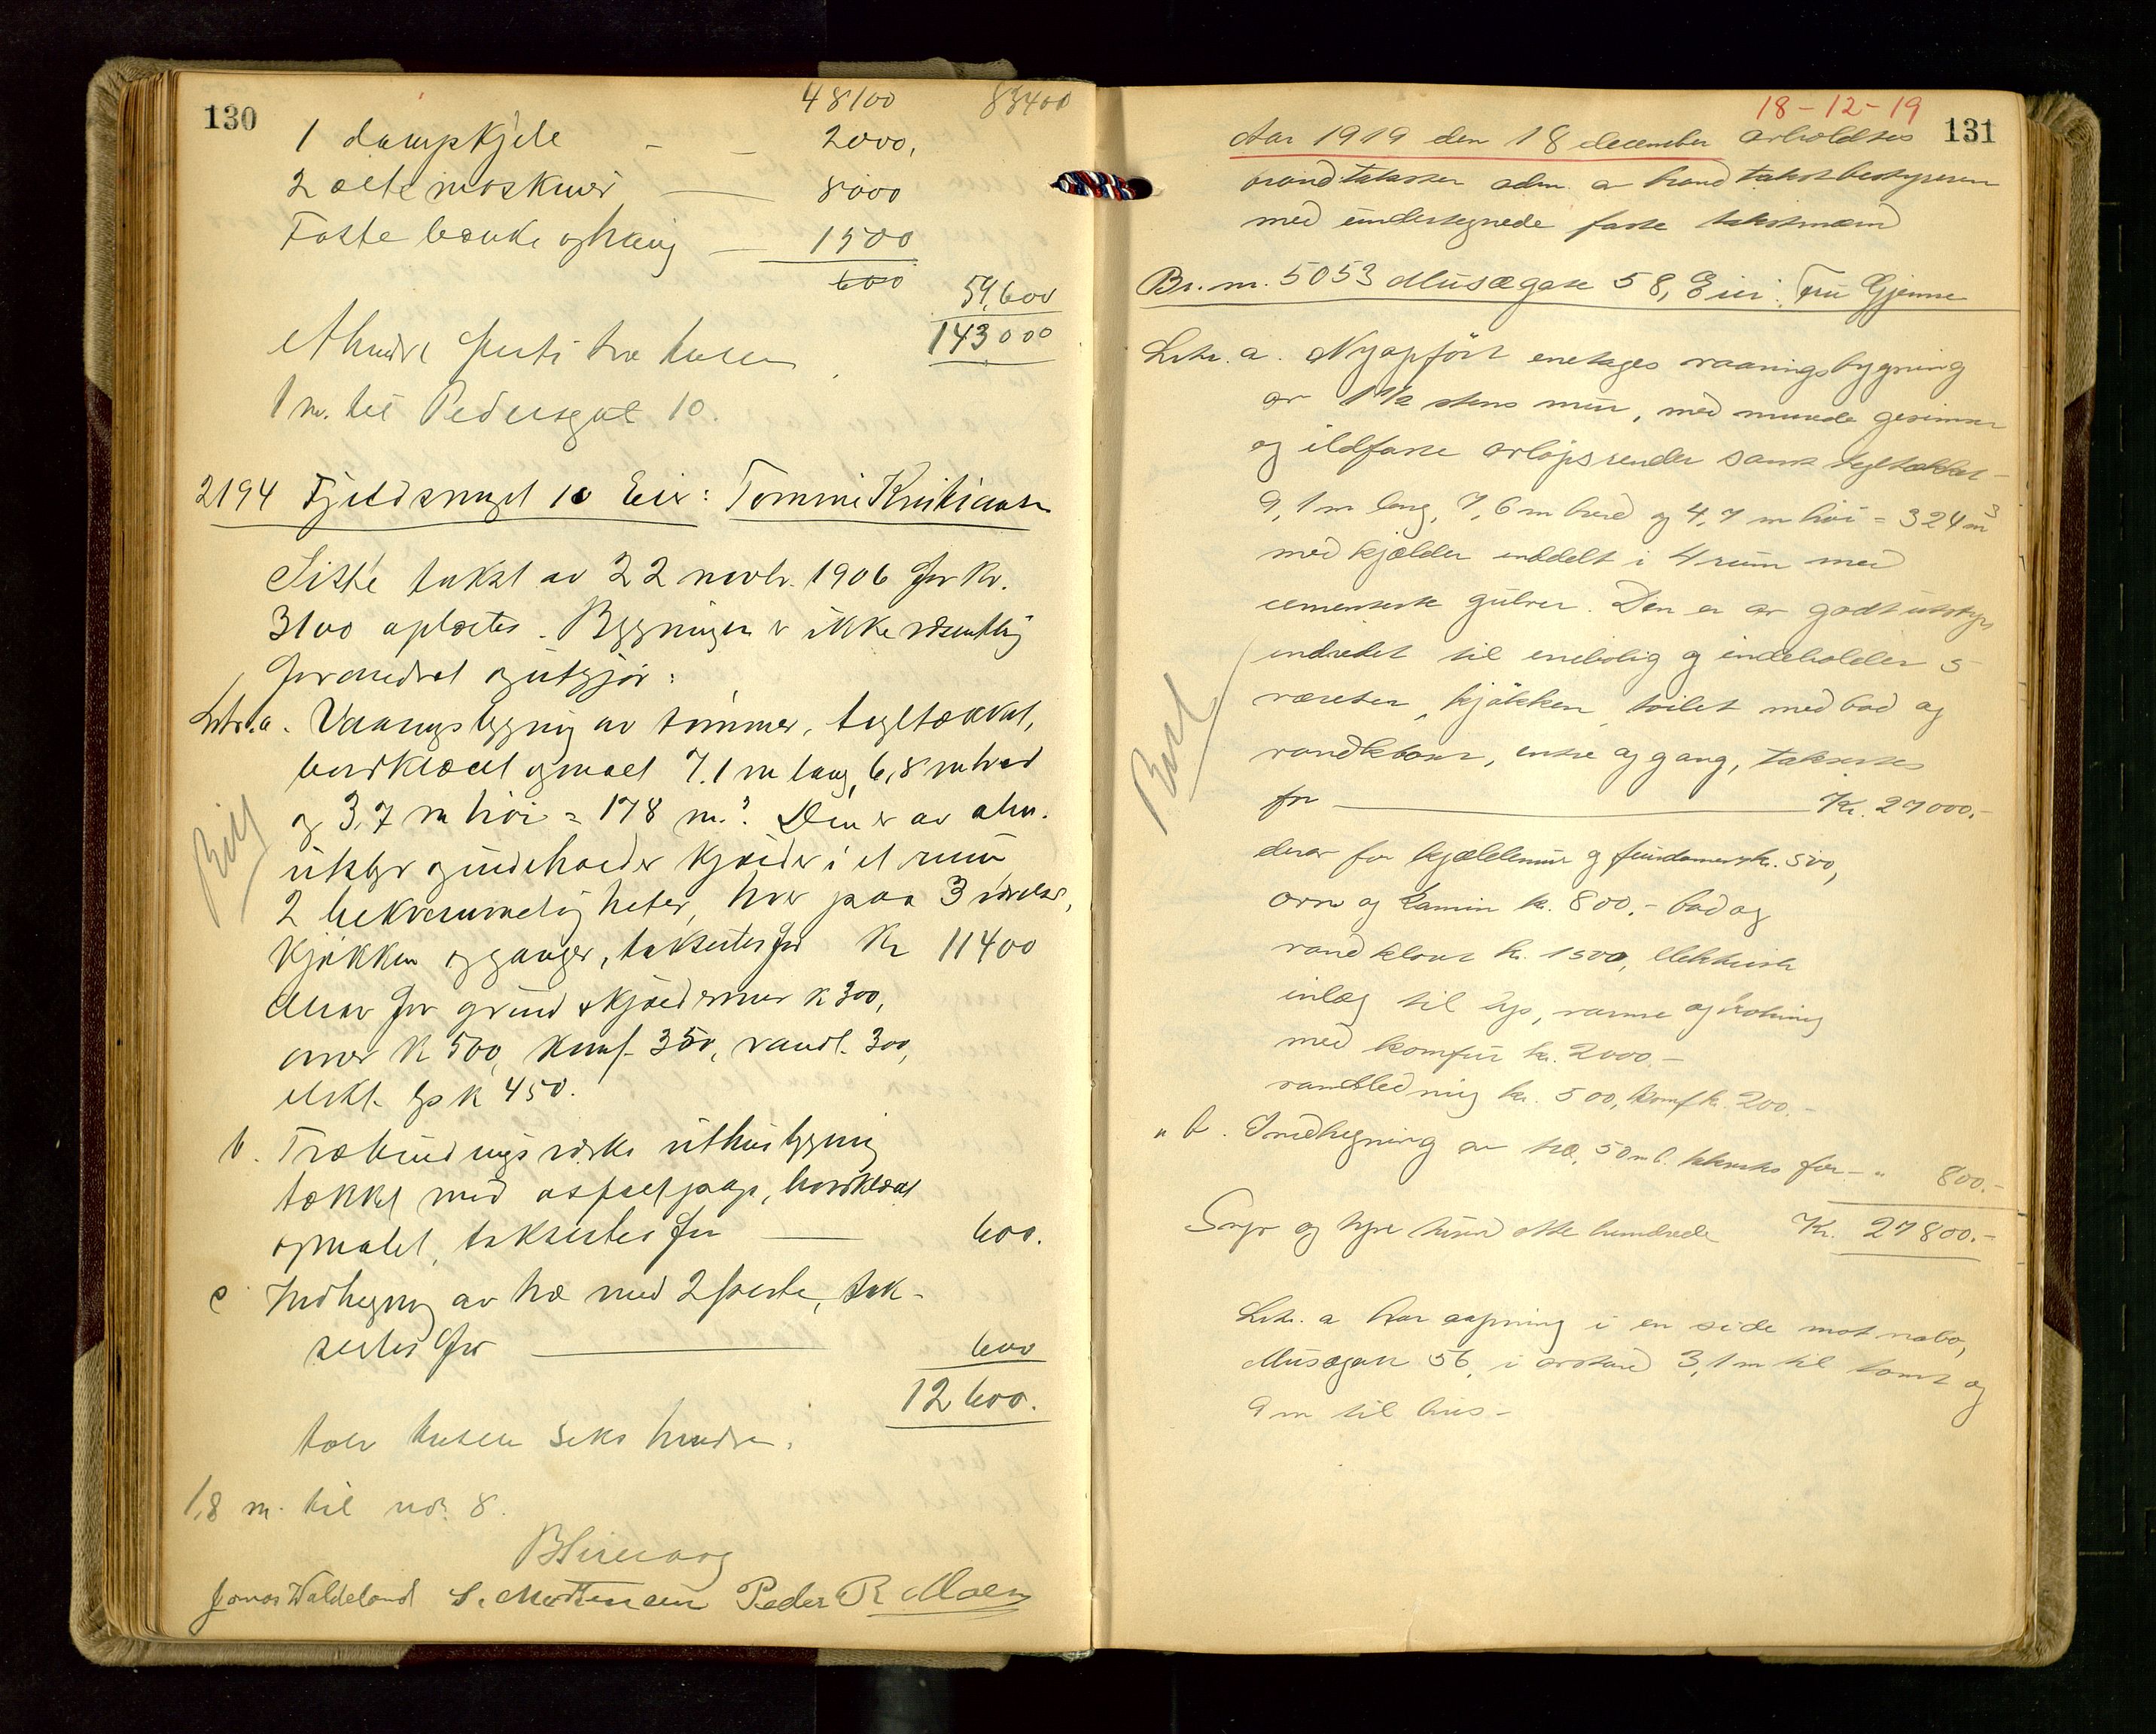 130
48100 83400
1 dampkjele - - 2000,
2 ælte maskiner — 8000
Faste bænke og hæng — 1500
600
59,600
143000
Ahundre førti tre tusen
1 m. til Pedersgat 10.
2194 Fjeldsmuget 10 Eier: Tommi Kristiansen
Siste takst av 22 novbr. 1906 for kr.
3100 oplæstes. Bygningen er ikke væsentlig
forandret og utgjør:
Litr. a. Vaaningsbygning av tømmer, tegltækket,
bordklædt og malt 7.1 m lang, 6,8 m bred
og 3,7 m høi = 178 m.³ Den er av alm.
utstyr og indeholder kjælder i et rum
2 bekvemmeligheter, hver paa 3 værelser,
kjøkken og ganger, takseres for Kr 11400
derav for grund & kjældermur k 300,
ovner k 500, komf. 350, vandl. 300,
elekt. lys k 450.
b. Træbindingsverks uthusbygning
tækket med asfaltpap, bordklædt
og malet, takseres for — 600.
c Indhegning av træ med 2 porte, tak-
seres for — 600
12600.
tolv tusen seks hundre.
1,8 m. til no. 8.
Jonas Waldeland S. Mortensen Peder R Moen
18-12-19
131
Aar 1919 den 18 december avholdtes
brandtakster adm. av brandtakstbestyreren
med undertegnede faste takstmænd
Br. nr. 5053 Musægate 58, Eier: Fru Gjemre
Litr. a. Nyopført enetages vaaningsbygning
av 1½ stens mur, med murede gesimser
og ildfaste avløpsrender samt tegltækket-
9,1 m lang, 7,6 m bred og 4,7 m høi = 324 m³
med kjælder inddelt i 4 rum med
cementerte gulver. Den er av godt utstyr
indredet til enebolig og indeholder 5
værelser, kjøkken, toilet med bad og
vandklosset, entre og gang, takseres
for — Kr. 27000.-
derav for kjældermur og fundament kr. 500,
ovn og kamin kr. 800.- bad og
vandkloset kr. 1500, elektrisk
inlæg til lys, varme og kokning
med komfur kr. 2000.-
vandledning kr. 500, komf kr. 200.-
" b. Indhegning av træ, 50 m l. takseres for - " 800.-
Syv og tyve tusen otte hundrede Kr. 27800.-
Litr. a har aapning i en side mot nabo,
Musægate 56, i avstand 3,1 m til tomt og
9 m til hus-